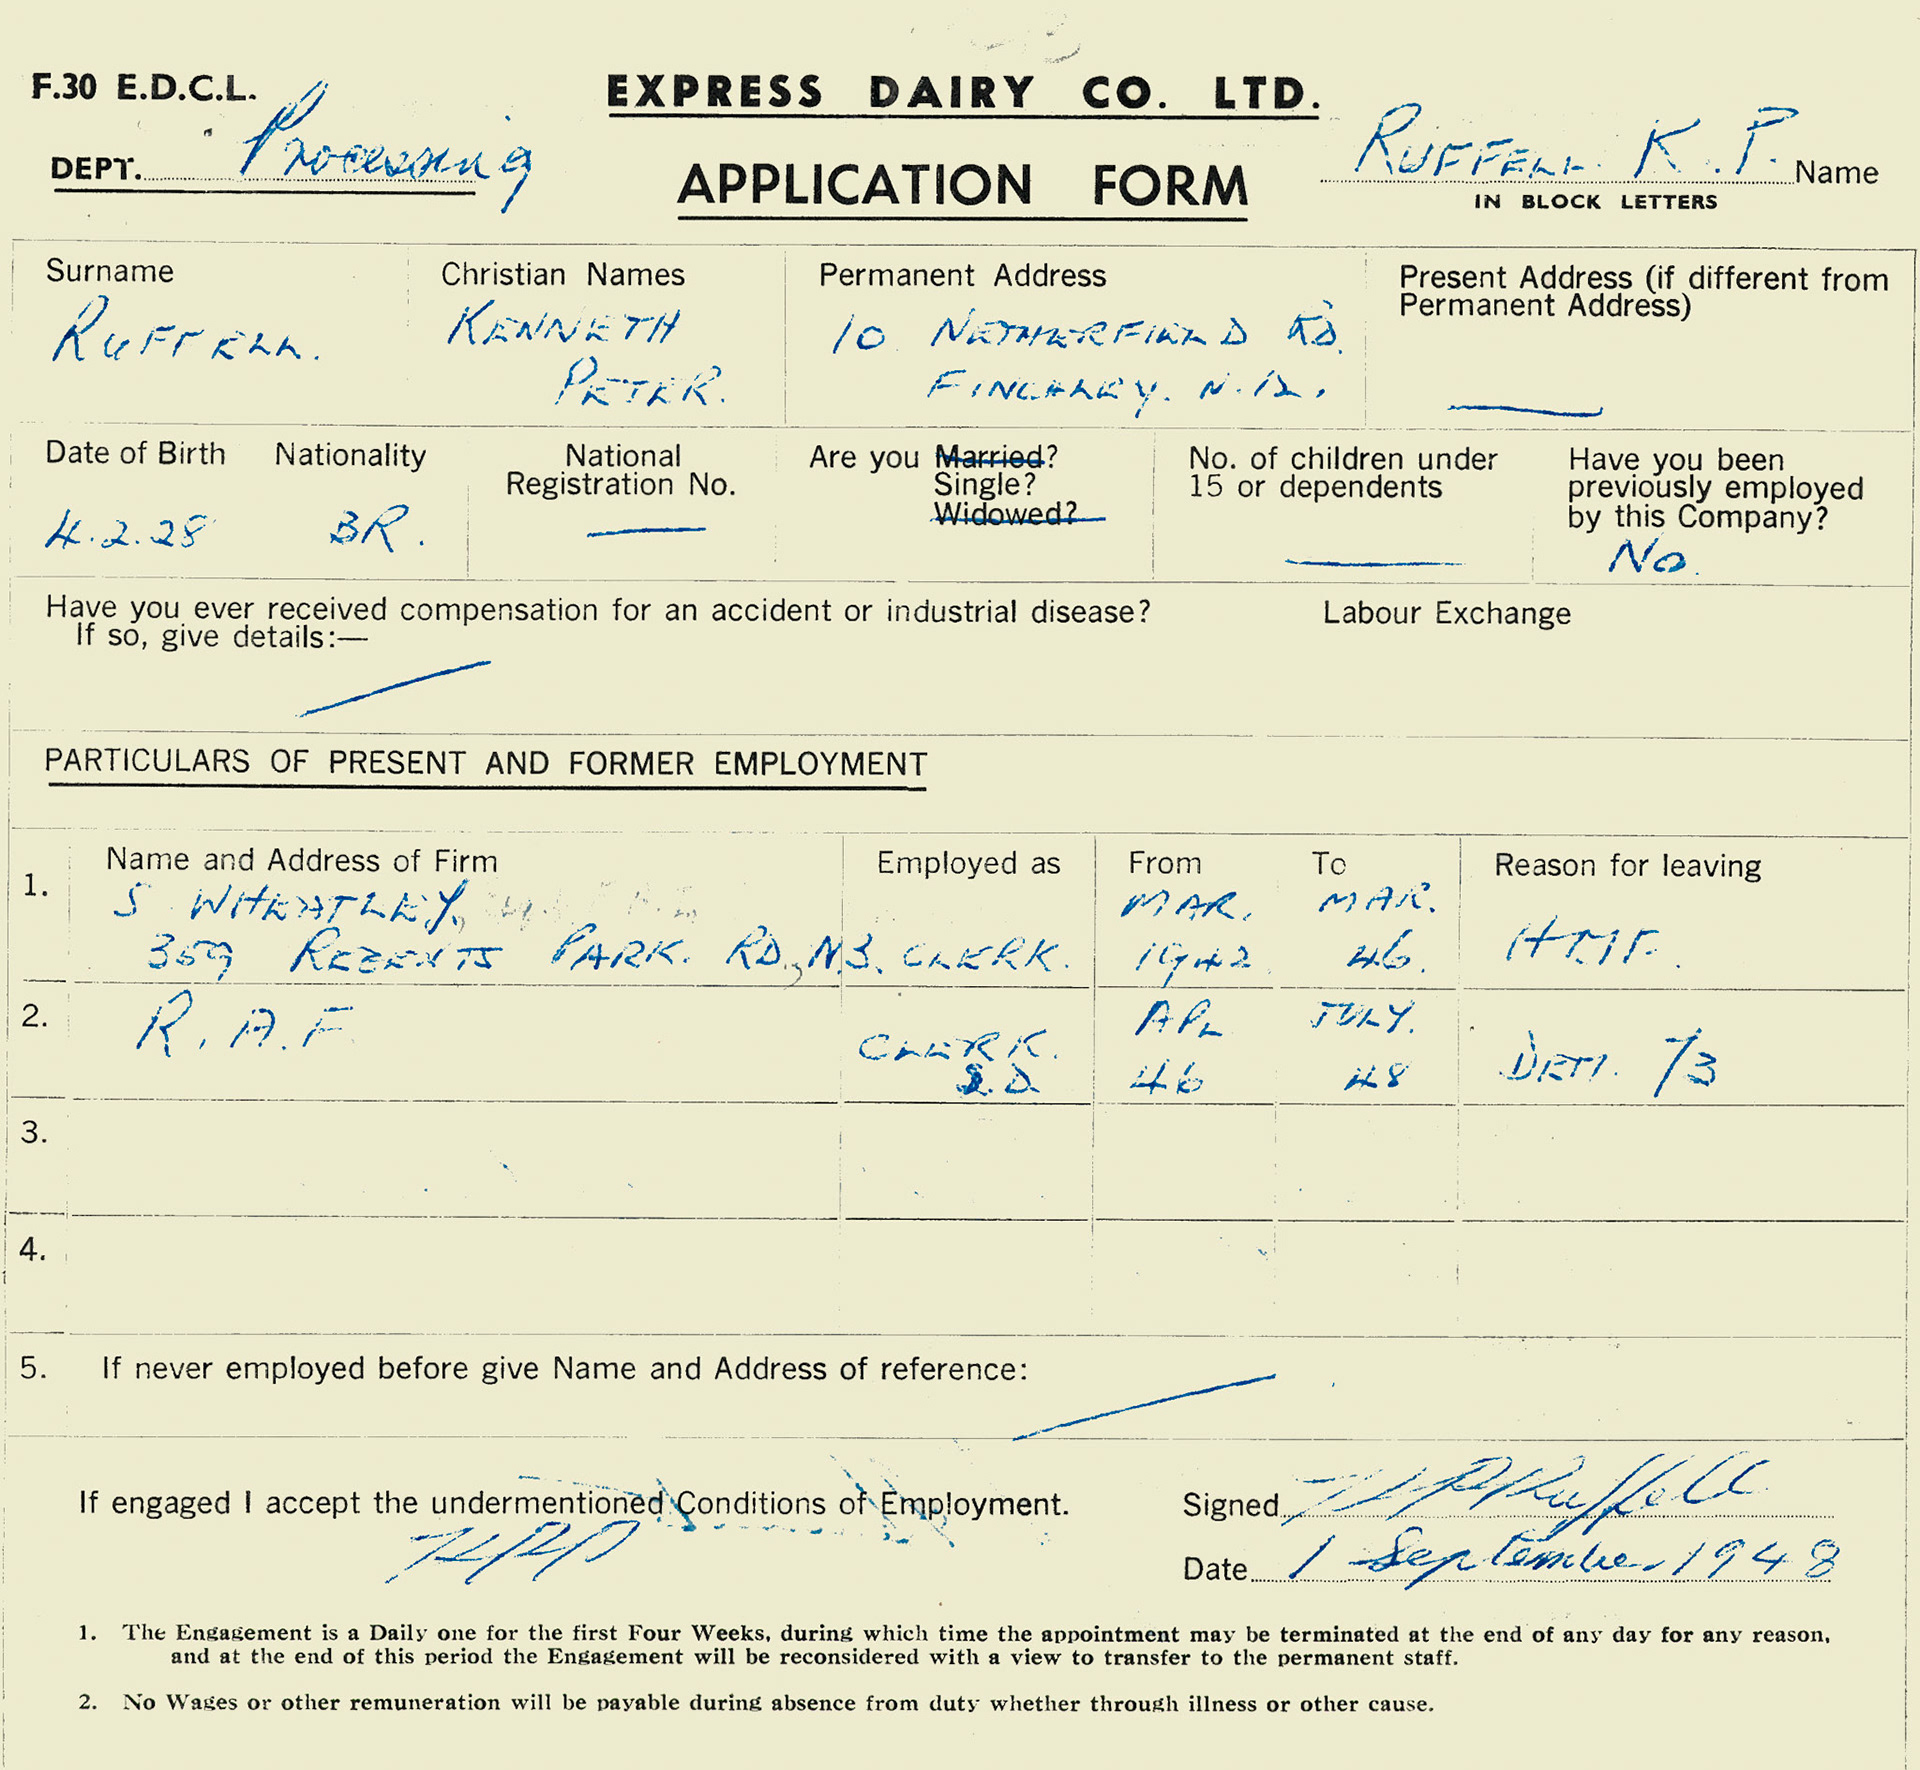 F.30 E.D.C.L.
EXPRESS DAIRY CO. LTD.
DEPT. Processing
APPLICATION FORM
RUFFELL K. P. Name
IN BLOCK LETTERS
Surname
RUFFELL.
Christian Names
KENNETH
PETER.
Permanent Address
10 NETHERFIELD RD.
FINCHLEY. N.12.
Present Address (if different from
Permanent Address)
Date of Birth
4.2.28
Nationality
BR.
National
Registration No.
Are you Married?
Single?
Widowed?
No. of children under
15 or dependents
Have you been
previously employed
by this Company?
No.
Have you ever received compensation for an accident or industrial disease?
If so, give details:—
Labour Exchange
PARTICULARS OF PRESENT AND FORMER EMPLOYMENT
Name and Address of Firm Employed as From To Reason for leaving
1. S WHEATLEY,
359 REGENTS PARK. RD, N3. CLERK. MAR. 1942 MAR. 46. H.M.F.
2. R.A.F. CLERK. S.D. APL 46 JULY. 48 DEM. 73
3.
4.
5. If never employed before give Name and Address of reference:
If engaged I accept the undermentioned Conditions of Employment.
KPR
Signed K P Ruffell
Date 1 September 1948
1. The Engagement is a Daily one for the first Four Weeks, during which time the appointment may be terminated at the end of any day for any reason,
and at the end of this period the Engagement will be reconsidered with a view to transfer to the permanent staff.
2. No Wages or other remuneration will be payable during absence from duty whether through illness or other cause.